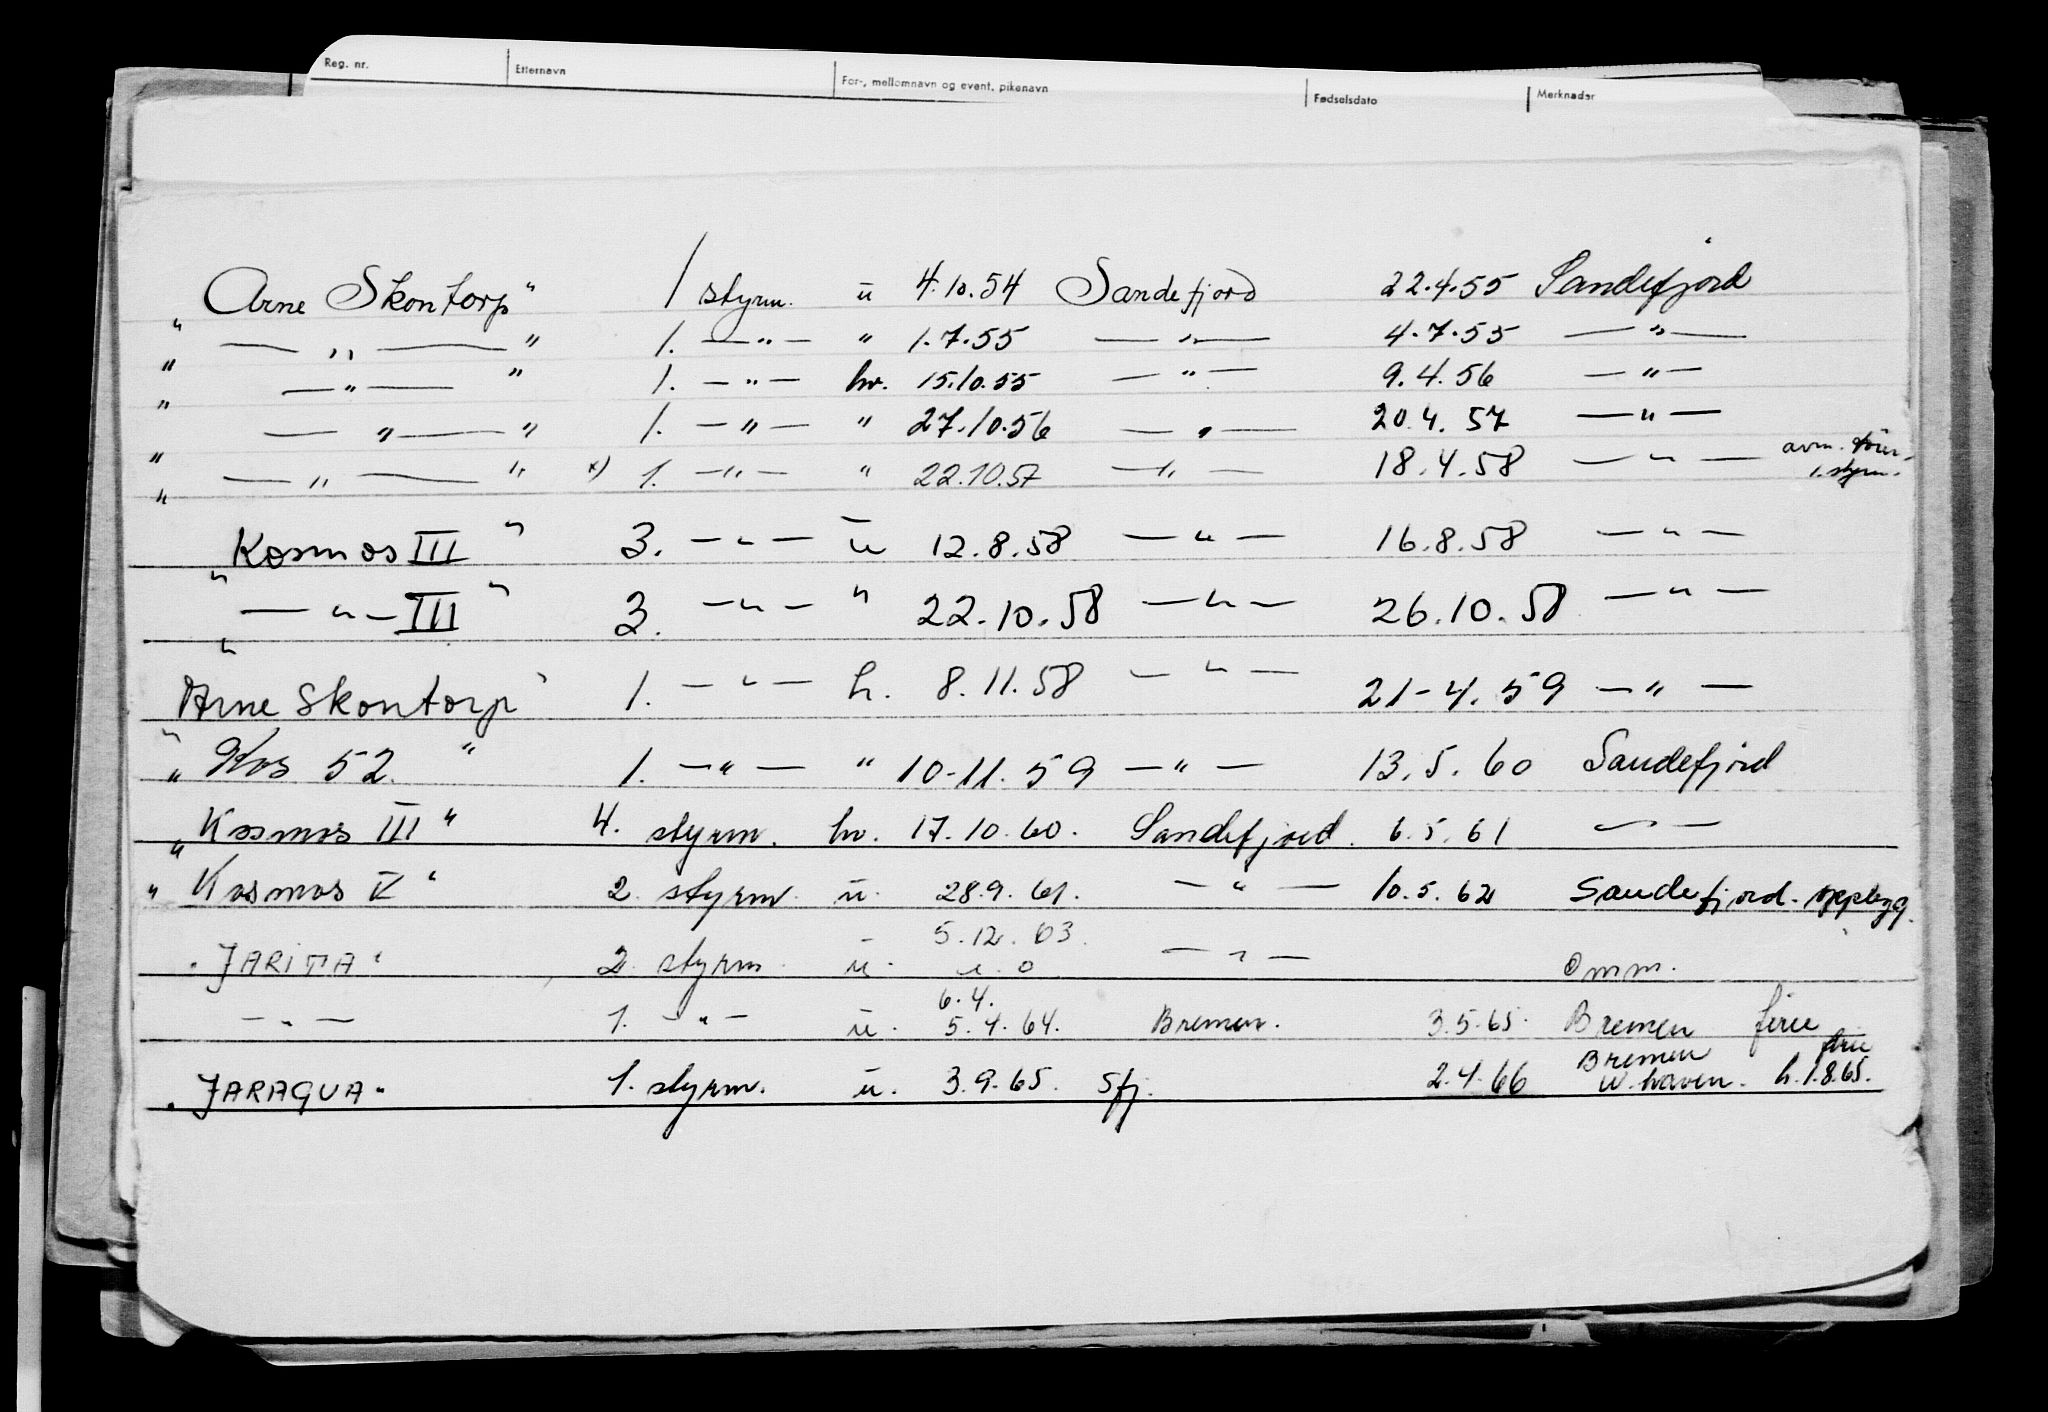 Reg. nr. Etternavn For-, mellomnavn og event. pikenavn Fødselsdato Merknader
"Arne Skontorp" 1 styrm. u 4.10.54 Sandefjord 22.4.55 Sandefjord
" — " — " 1. — " — " 1.7.55 — " — 4.7.55 — " —
" — " — " 1. — " — hv. 15.10.55 — " — 9.4.56 — " —
" — " — " 1. — " — " 27.10.56 — " — 20.4.57 — " —
" — " — " x) 1. — " — " 22.10.57 — " — 18.4.58 — " — avm.
1. styrm.
"Kosmos III" 3. — " — u 12.8.58 — " — 16.8.58 — " —
" — " — III" 3. — " — " 22.10.58 — " — 26.10.58 — " —
"Arne Skontorp" 1. — " — h. 8.11.58 — " — 21-4.59 — " —
"Kos 52." 1. — " — " 10-11.59 — " — 13.5.60 Sandefjord
"Kosmos III" 4. styrm. hv. 17.10.60. Sandefjord. 6.5.61 — " —
"Kosmos V" 2. styrm. u. 28.9.61. — " — 10.5.62 Sandefjord. opplagg.
5.12.63.
"JARITA" 2. styrm. u. — " — omm.
6.4.
— " — 1. — " — u. 5.4.64. Bremen. 3.5.65. Bremen ferie
Bremen ferie
"JARAGUA" 1. styrm. u. 3.9.65. Sfj. 2.4.66 W.haven. h.1.8.65.